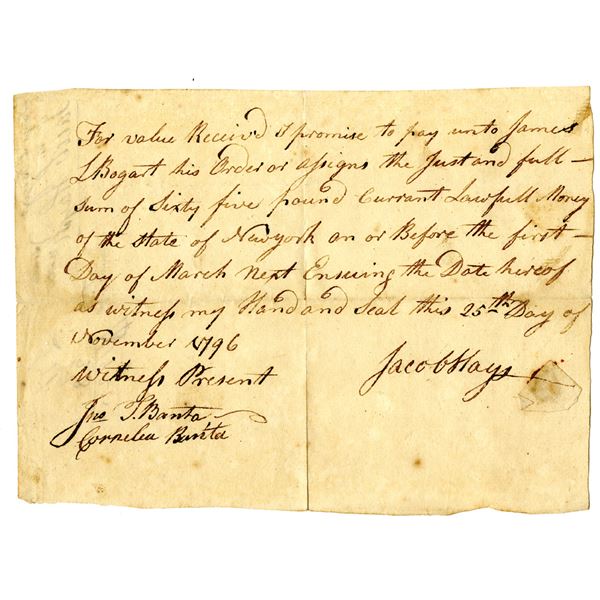 For value Receivd I promise to pay unto James
L Bogart his Order or assigns the Just and full —
sum of Sixty five pound Currant Lawfull Money
of the State of Newyork on or Before the first —
Day of March Next Ensuing the Date hereof
as witness my Hand and Seal this 25th Day of
November 1796
Witness Present
Jacob Hays
Jno T. Banta
Cornelea Banta